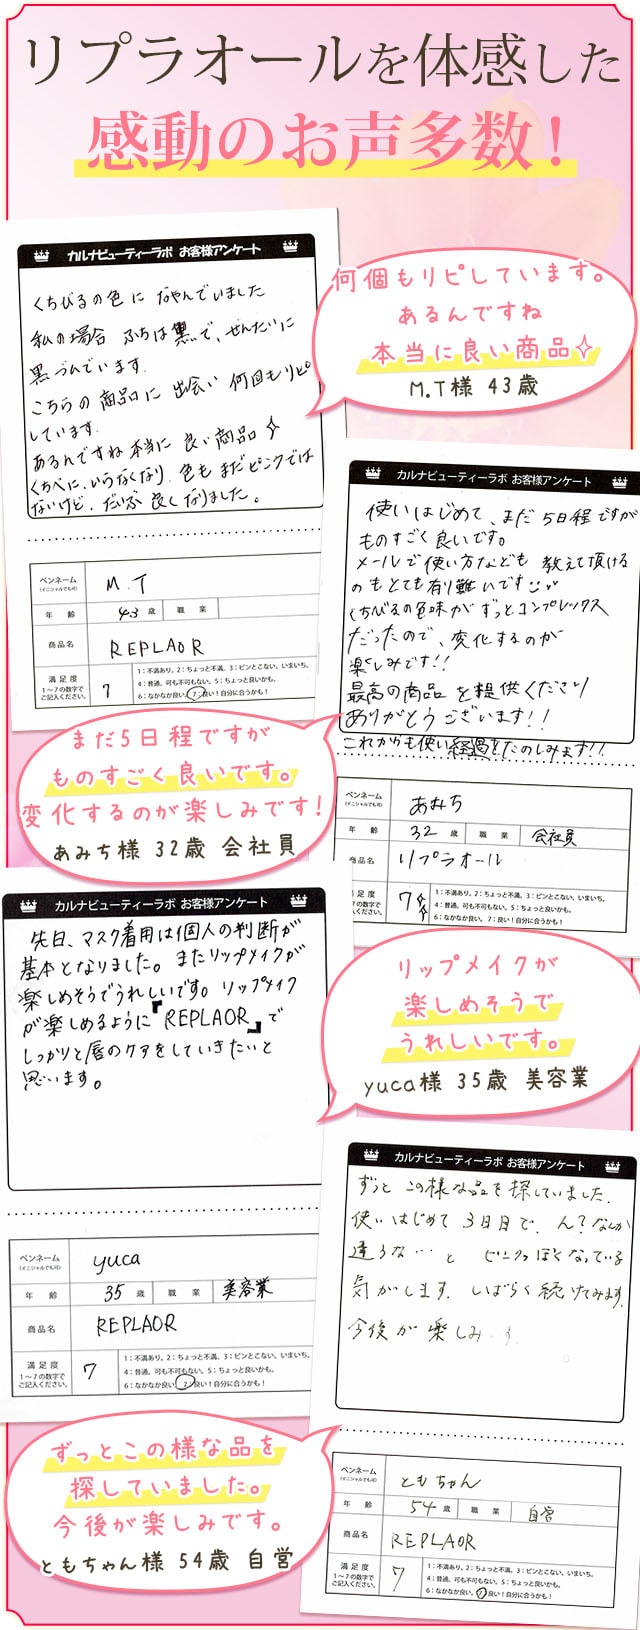 リプラオールを体感した
感動のお声多数！
カルナビューティーラボ お客様アンケート
くちびるの色に なやんでいました
私の場合 ふちは黒で、ぜんたいに
黒づんでいます.
こちらの 商品に 出会い 何回もリピ
しています.
あるんですね 本当に 良い商品✧
くちべに、いらなくなり. 色も まだピンクでは
ないけど. だいぶ 良く なりました。
ペンネーム
(イニシャルでも可)
M.T
年 齢 43 歳 職 業
商品名 REPLAOR
満足度
1～7の数字で
ご記入ください。
7
1：不満あり。2：ちょっと不満。3：ピンとこない、いまいち。
4：普通。可も不可もない。5：ちょっと良いかも。
6：なかなか良い。7：良い！自分に合うかも！
何個もリピしています。
あるんですね
本当に良い商品✧
M.T様 43歳
カルナビューティーラボ お客様アンケート
使いはじめて、まだ 5日程ですが
ものすごく良いです。
メールで使い方なども 教えて頂ける
のもとても有り難いです
くちびるの色味が ずっとコンプレックス
だったので、変化するのが
楽しみです!!
最高の商品 を提供ください
ありがとう ございます!!
これからも使い 経過をたのしみます!!
ペンネーム
(イニシャルでも可)
あみち
年 齢 32 歳 職 業 会社員
商品名 リプラオール
満足度
1～7の数字で
ご記入ください。
7
1：不満あり。2：ちょっと不満。3：ピンとこない、いまいち。
4：普通。可も不可もない。5：ちょっと良いかも。
6：なかなか良い。7：良い！自分に合うかも！
まだ5日程ですが
ものすごく良いです。
変化するのが楽しみです!
あみち様 32歳 会社員
カルナビューティーラボ お客様アンケート
先日、マスク着用は個人の判断が
基本となりました。またリップメイクが
楽しめそうでうれしいです。リップメイク
が楽しめるように『REPLAOR』で
しっかりと唇のケアをしていきたいと
思います。
ペンネーム
(イニシャルでも可)
yuca
年 齢 35 歳 職 業 美容業
商品名 REPLAOR
満足度
1～7の数字で
ご記入ください。
7
1：不満あり。2：ちょっと不満。3：ピンとこない、いまいち。
4：普通。可も不可もない。5：ちょっと良いかも。
6：なかなか良い。7：良い！自分に合うかも！
リップメイクが
楽しめそうで
うれしいです。
yuca様 35歳 美容業
カルナビューティーラボ お客様アンケート
ずっと この様な品を 探していました.
使いはじめて 3日目で、ん？なんか
違うな… と ピンクっぽくなっている
気がします. しばらく続けてみます.
今後が 楽しみ
ペンネーム
(イニシャルでも可)
ともちゃん
年 齢 54 歳 職 業 自営
商品名 REPLAOR
満足度
1～7の数字で
ご記入ください。
7
1：不満あり。2：ちょっと不満。3：ピンとこない、いまいち。
4：普通。可も不可もない。5：ちょっと良いかも。
6：なかなか良い。7：良い！自分に合うかも！
ずっとこの様な品を
探していました。
今後が楽しみです。
ともちゃん様 54歳 自営